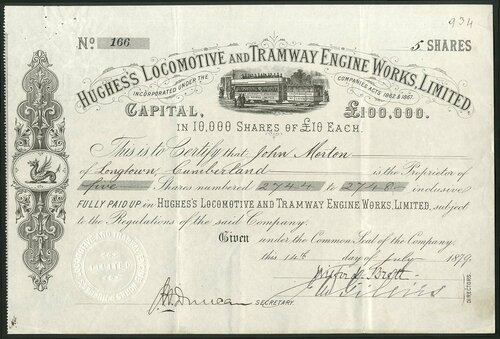 934
No 166
5 SHARES
HUGHES'S LOCOMOTIVE AND TRAMWAY ENGINE WORKS, LIMITED.
INCORPORATED UNDER THE COMPANIES ACTS 1862 & 1867.
CAPITAL, £100,000.
IN 10,000 SHARES OF £10 EACH.
This is to Certify that John Morton
of Longtown, Cumberland is the Proprietor of
five Shares numbered 2744 to 2748 inclusive
FULLY PAID UP in HUGHES'S LOCOMOTIVE AND TRAMWAY ENGINE WORKS, LIMITED, subject
to the Regulations of the said Company.
Given under the Common Seal of the Company,
this 14th day of July 1879.
Duncan
SECRETARY.
DIRECTORS
LIMITED